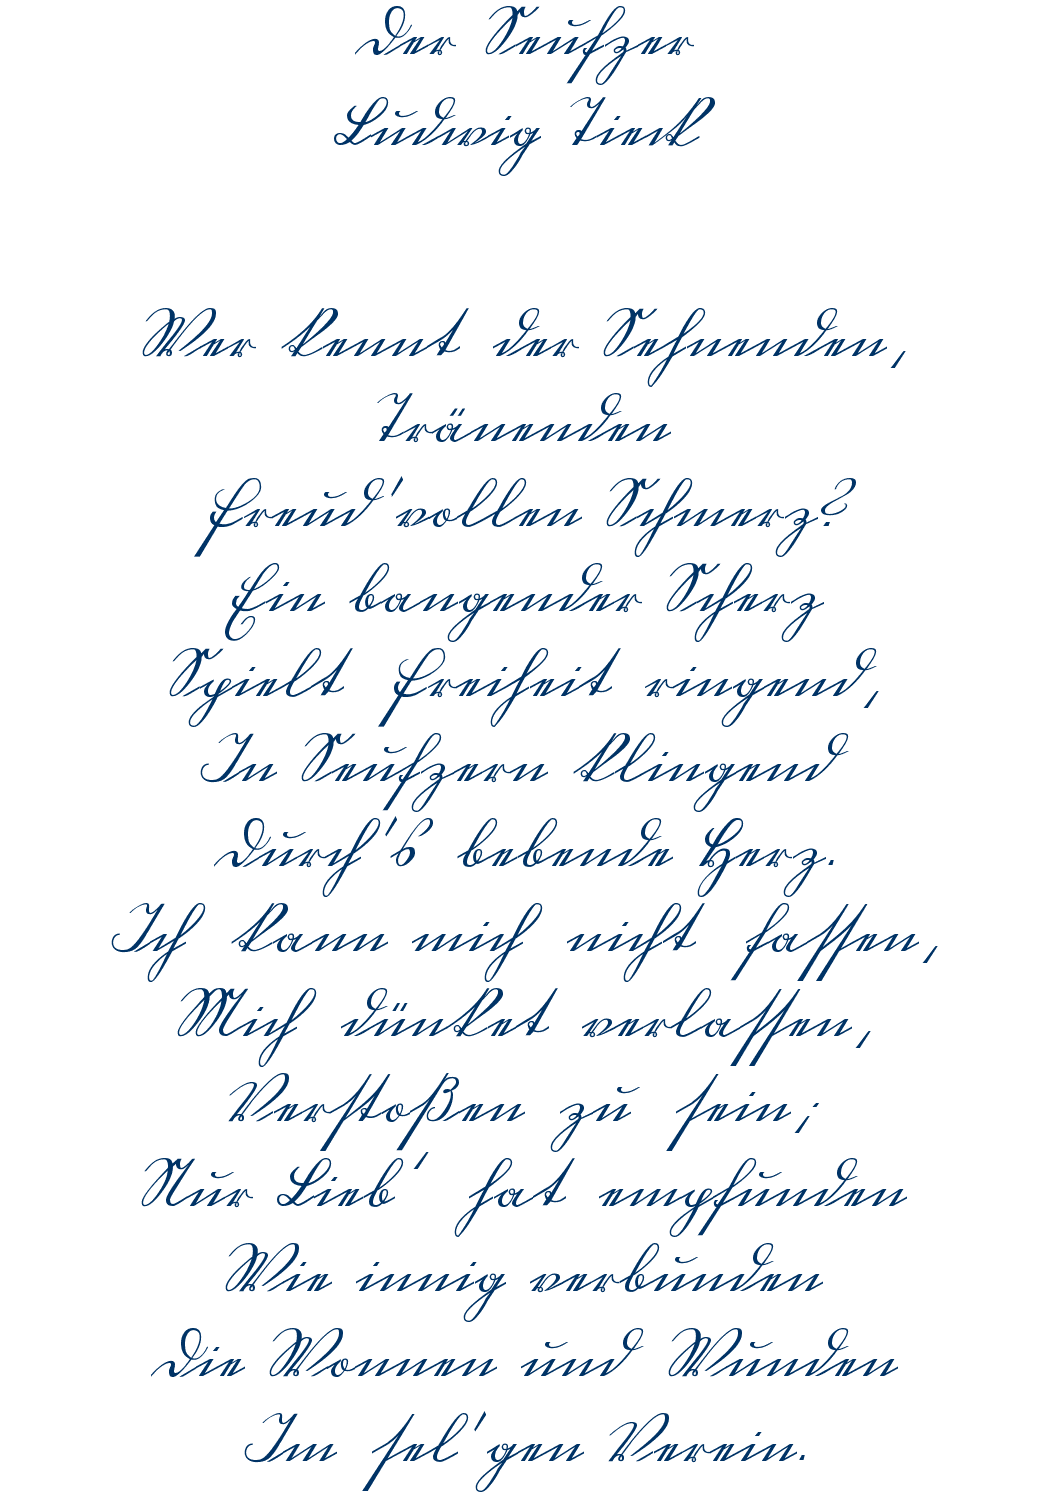 Der Seufzer
Ludwig Tieck
Wer kennt der Sehnenden,
Tränenden
Freud'vollen Schmerz?
Ein bangender Scherz
Spielt Freiheit ringend,
In Seufzern klingend
Durch's bebende Herz.
Ich kann mich nicht fassen,
Mich dünket verlassen,
Verstoßen zu sein;
Nur Lieb' hat empfunden
Wie innig verbunden
Die Wonnen und Wunden
Im sel'gen Verein.